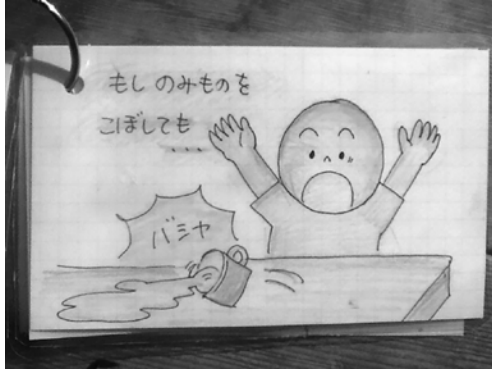 もし のみものを
こぼしても
・・・
バシャ